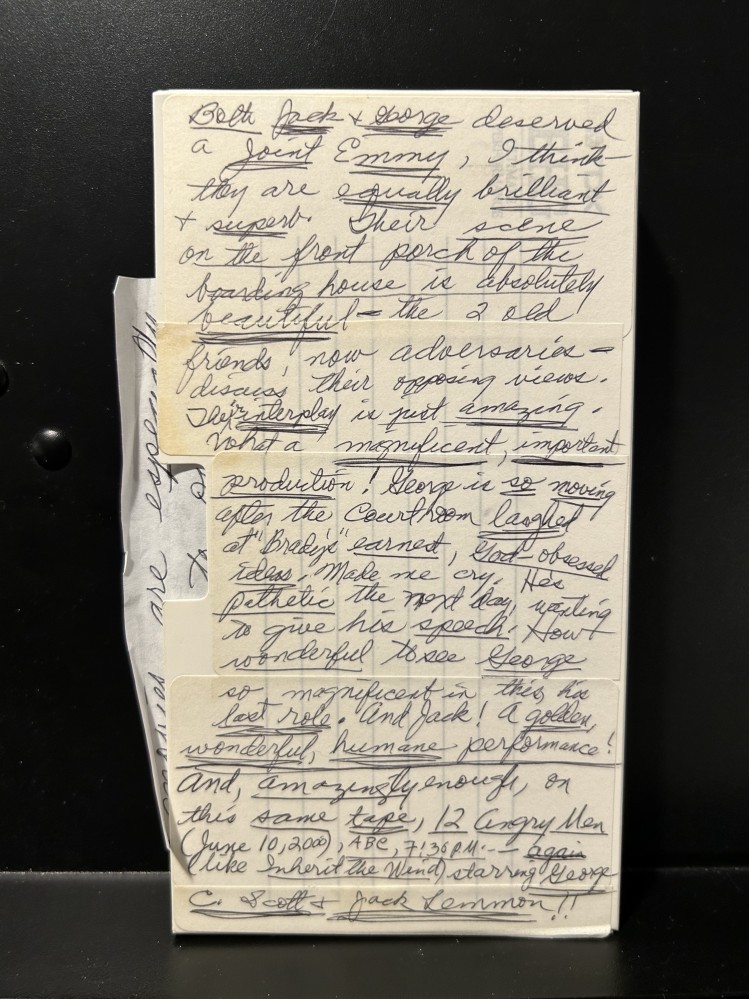 Both Jack & George deserved
a Joint Emmy, I think
they are equally brilliant
& superb. Their scene
on the front porch of the
boarding house is absolutely
beautiful - the 2 old
friends, now adversaries -
discuss their opposing views.
Their interplay is just amazing.
What a magnificent, important
production! George is so moving
after the Courtroom laughed
at "Brady's" earnest, God-obsessed
ideas. Made me cry. He's
pathetic the next day, wanting
to give his speech. How
wonderful to see George
so magnificent in this, his
last role. And Jack! A golden,
wonderful, humane performance!
And, amazingly enough, on
this same tape, 12 Angry Men
(June 10, 2000), ABC, 7:30 P.M. - again
(like Inherit the Wind) starring George
C. Scott & Jack Lemmon!!
are especially